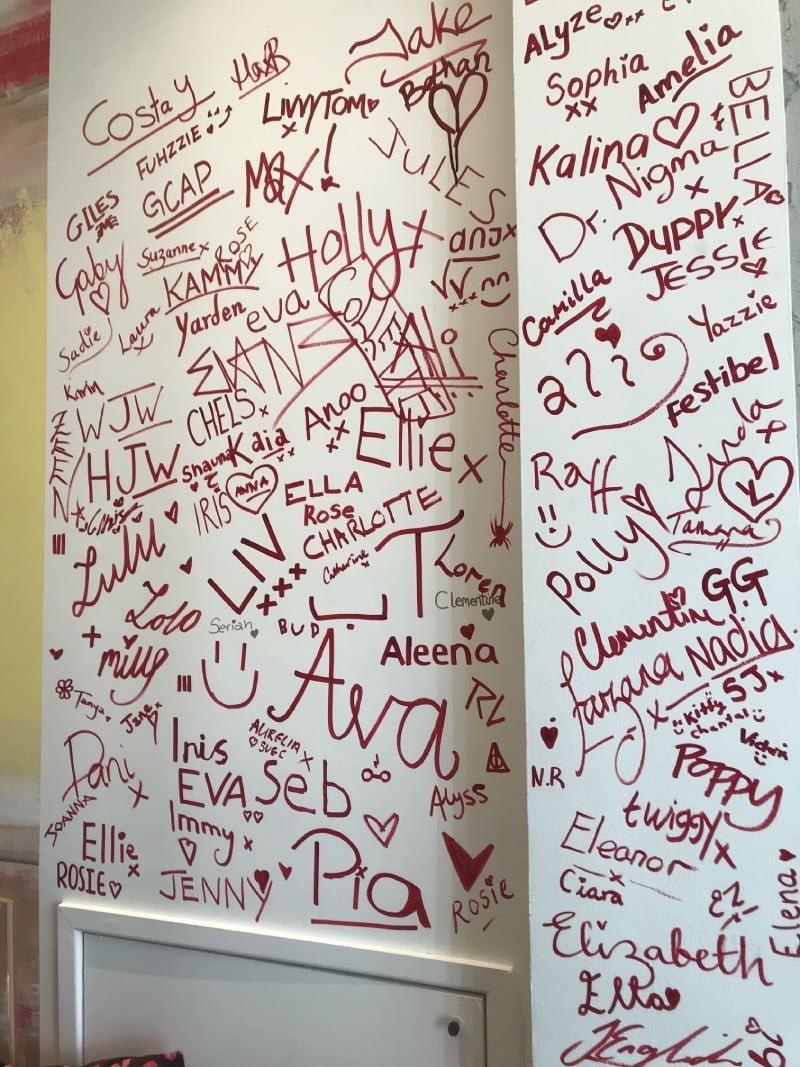 Jake
Costay
HaxB
Bethan
LivvyTOM
x
FUHZZIE
GCAP
Max!
JULES
GILES
Suzanne x
ROSE
Holly x
anjx
Gaby
KAMMY
Yarden
eva
Sadie
Laura
Ali
Charlotte
Karin
WJW
CHELS x
Anoo
xx
Ellie x
HJW
Shauna
Kaia
xx
ANNA
IRIS
ELLA
Rose
CHARLOTTE
Catherine
Chris
Lulu
LIV
xxx
Loren
Clementine
Lolo
Serian
BUD
LT
Aleena
milly
Ava
RL
Tanya
Jane x
Dani
x
Iris
AURELIA
x
EVA
Seb
Alyss
JOANNA
Immy x
Ellie
x
ROSIE
JENNY
Pia
Rosie
ALyze xx
Sophia
xx
Amelia
BELLA
Kalina
Dr. Nigma
x
Duppy x
JESSIE
Camilla
Yazzie
Festibel
Raff
Linda
x
Polly
Tamana
GG
Clementine
farzana
Nadia
x
SJ x
Kitty
chantal
Victoria
N.R
Poppy
twiggy x
Eleanor
x
Ciara
Elena
Elizabeth
Ella
JEnglish